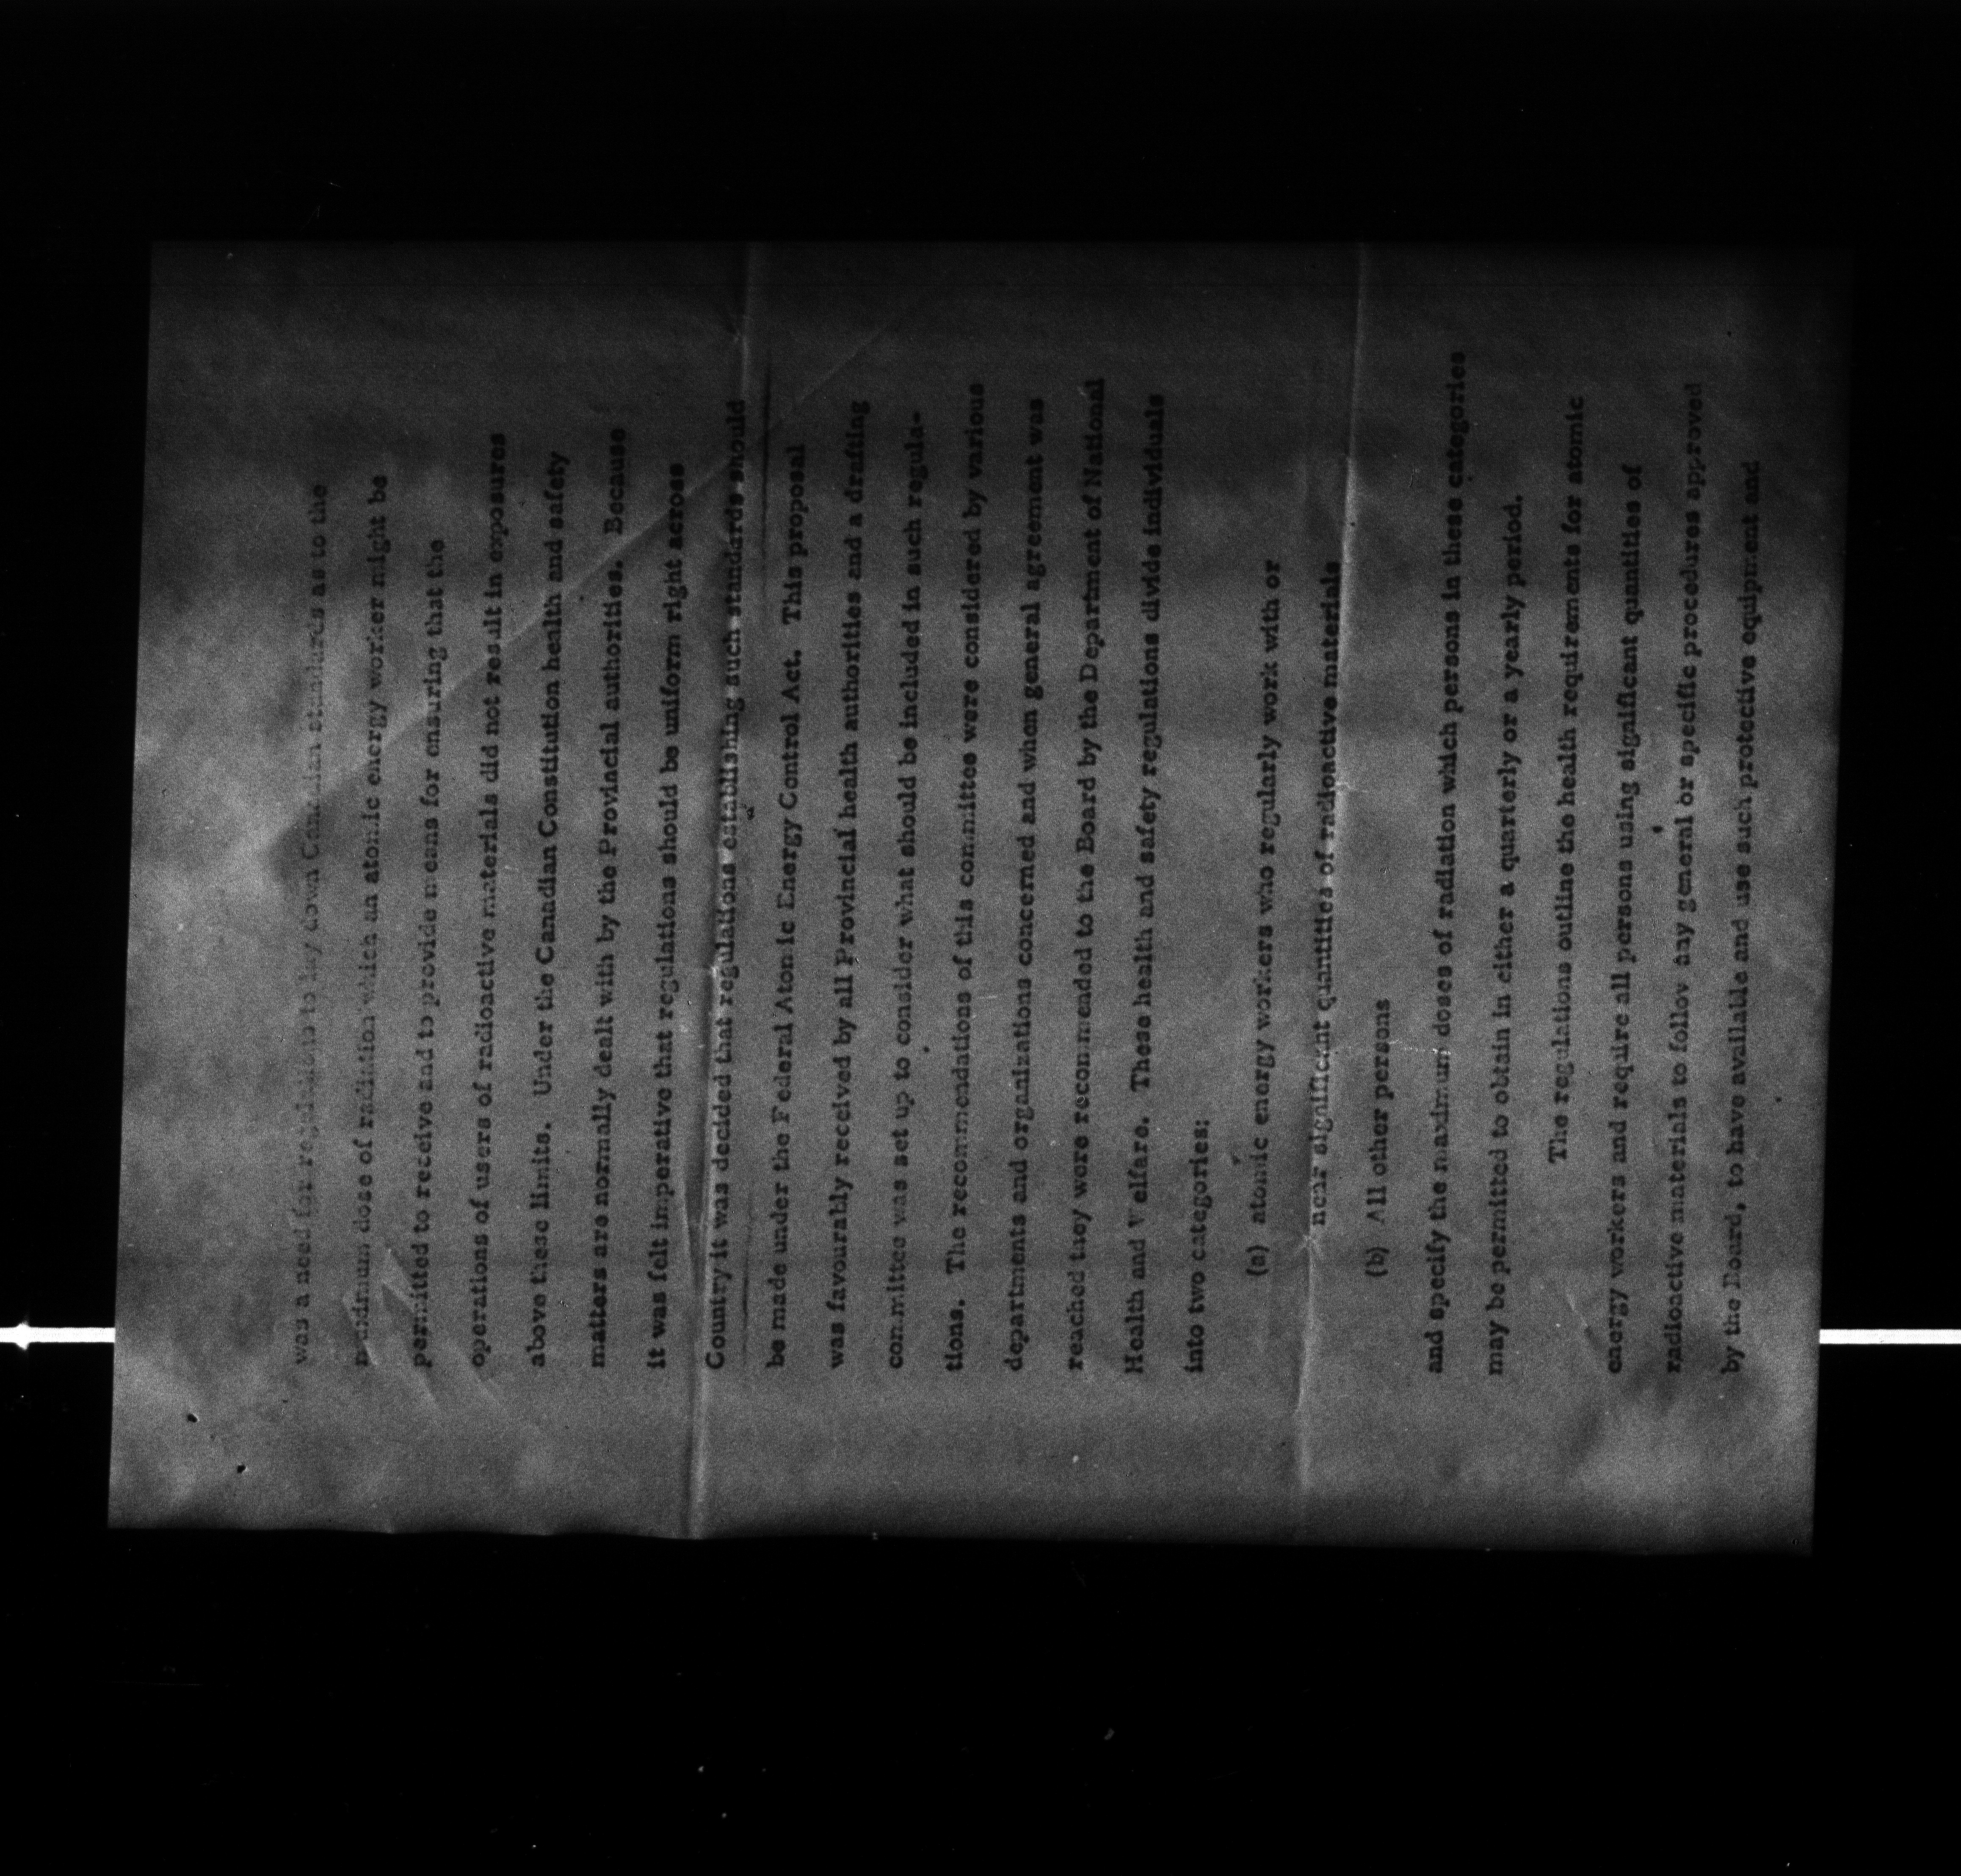 was a need for regulations to lay down Canadian standards as to the
maximum dose of radiation which an atomic energy worker might be
permitted to receive and to provide means for ensuring that the
operations of users of radioactive materials did not result in exposures
above these limits. Under the Canadian Constitution health and safety
matters are normally dealt with by the Provincial authorities. Because
it was felt imperative that regulations should be uniform right across
Country it was decided that regulations establishing such standards should
be made under the Federal Atomic Energy Control Act. This proposal
was favourably received by all Provincial health authorities and a drafting
committee was set up to consider what should be included in such regula-
tions. The recommendations of this committee were considered by various
departments and organizations concerned and when general agreement was
reached they were recommended to the Board by the Department of National
Health and Welfare. These health and safety regulations divide individuals
into two categories:
(a) atomic energy workers who regularly work with or
near significant quantities of radioactive materials
(b) All other persons
and specify the maximum doses of radiation which persons in these categories
may be permitted to obtain in either a quarterly or a yearly period.
The regulations outline the health requirements for atomic
energy workers and require all persons using significant quantities of
radioactive materials to follow any general or specific procedures approved
by the Board, to have available and use such protective equipment and